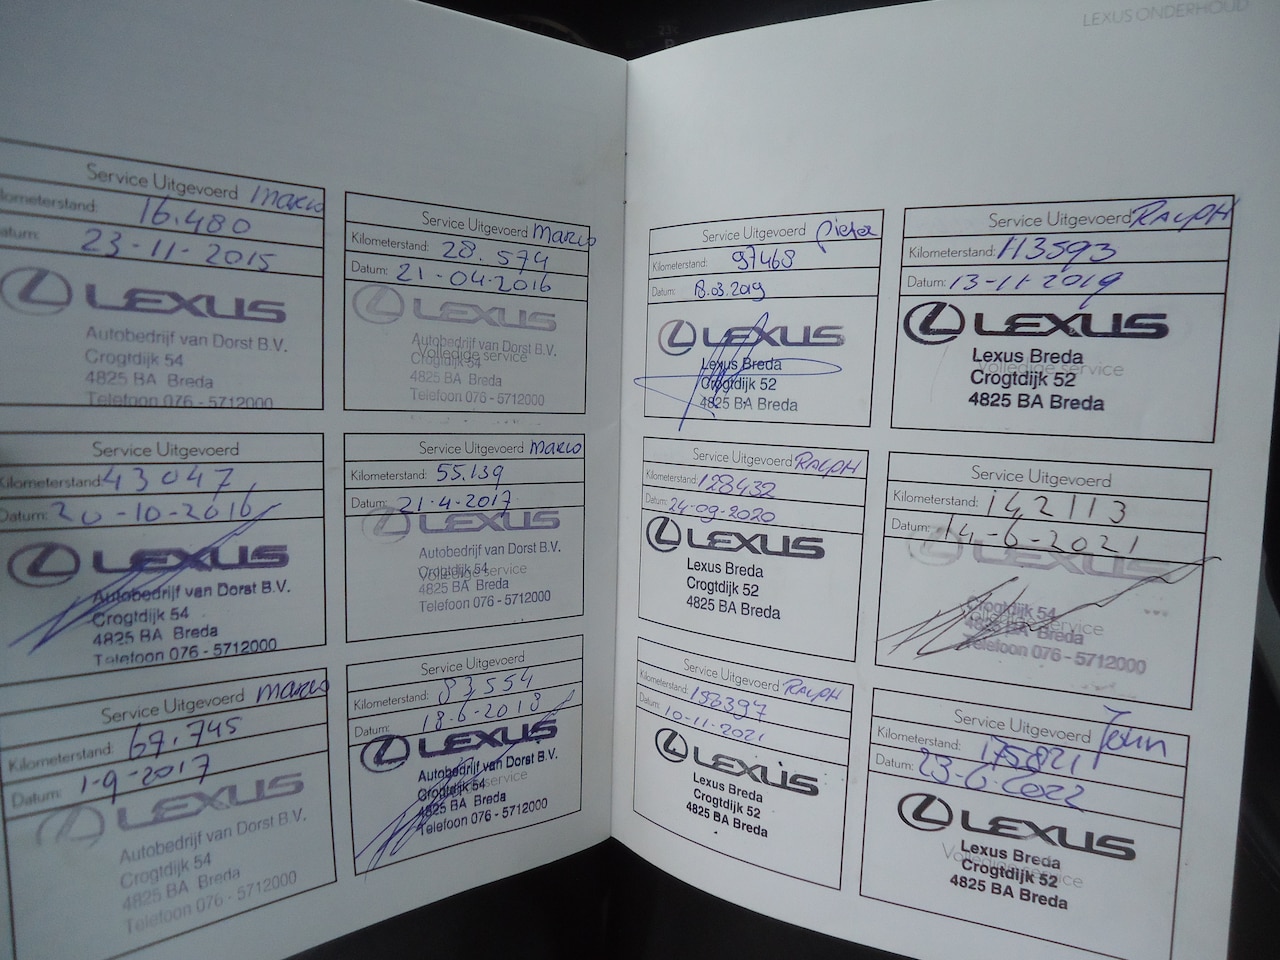 LEXUS ONDERHOUD
Service Uitgevoerd Mario
Kilometerstand: 16.480
Datum: 23-11-2015
LEXUS
Autobedrijf van Dorst B.V.
Crogtdijk 54
4825 BA Breda
Telefoon 076 - 5712000
Service Uitgevoerd Mario
Kilometerstand: 28.574
Datum: 21-04-2016
LEXUS
Autobedrijf van Dorst B.V.
Volledige service
Crogtdijk 54
4825 BA Breda
Telefoon 076 - 5712000
Service Uitgevoerd
Kilometerstand: 43047
Datum: 20-10-2016
LEXUS
Autobedrijf van Dorst B.V.
Crogtdijk 54
4825 BA Breda
Telefoon 076 - 5712000
Service Uitgevoerd Mario
Kilometerstand: 55.139
Datum: 21-4-2017
LEXUS
Autobedrijf van Dorst B.V.
Crogtdijk 54
Volledige service
4825 BA Breda
Telefoon 076 - 5712000
Service Uitgevoerd Mario
Kilometerstand: 69.745
Datum: 1-9-2017
LEXUS
Autobedrijf van Dorst B.V.
Crogtdijk 54
4825 BA Breda
Telefoon 076 - 5712000
Service Uitgevoerd
Kilometerstand: 83554
Datum: 18-6-2018
LEXUS
Autobedrijf van Dorst B.V.
Crogtdijk 54
service
4825 BA Breda
Telefoon 076 - 5712000
Service Uitgevoerd Pieter
Kilometerstand: 97468
Datum: 18.03.2019
LEXUS
Lexus Breda
Crogtdijk 52
4825 BA Breda
Service Uitgevoerd RALPH
Kilometerstand: 113593
Datum: 13-11-2019
LEXUS
Lexus Breda
Volledige service
Crogtdijk 52
4825 BA Breda
Service Uitgevoerd RALPH
Kilometerstand: 128432
Datum: 24-09-2020
LEXUS
Lexus Breda
Crogtdijk 52
4825 BA Breda
Service Uitgevoerd
Kilometerstand: 142113
Datum: 14-6-2021
LEXUS
Crogtdijk 54
Volledige service
4825 BA Breda
Telefoon 076 - 5712000
Service Uitgevoerd RALPH
Kilometerstand: 156397
Datum: 10-11-2021
LEXUS
Lexus Breda
Crogtdijk 52
4825 BA Breda
Service Uitgevoerd
Kilometerstand: 175821
Datum: 23-6-2022
LEXUS
Lexus Breda
Volledige service
Crogtdijk 52
4825 BA Breda